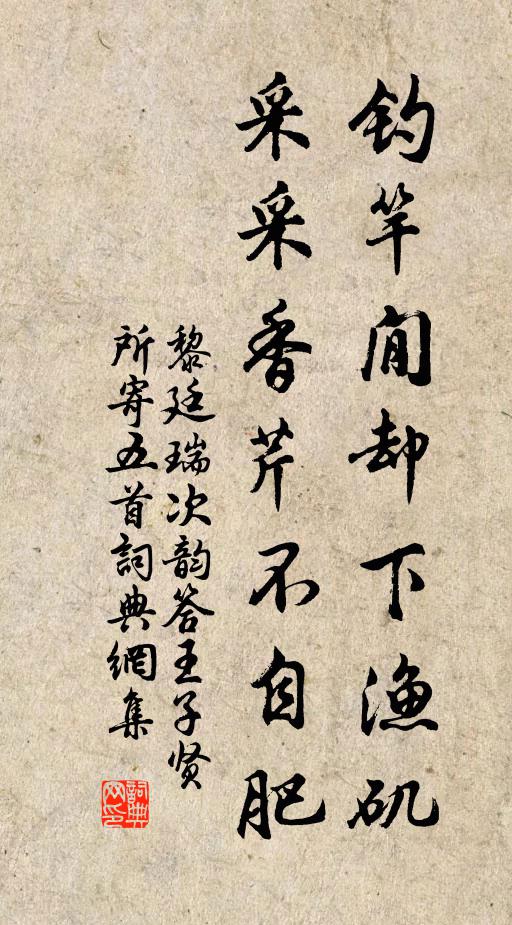 钓竿閒却下渔矶
采采香芹不自肥
黎廷瑞次韵答王子贤
所寄五首詞典網集
詞典
网印